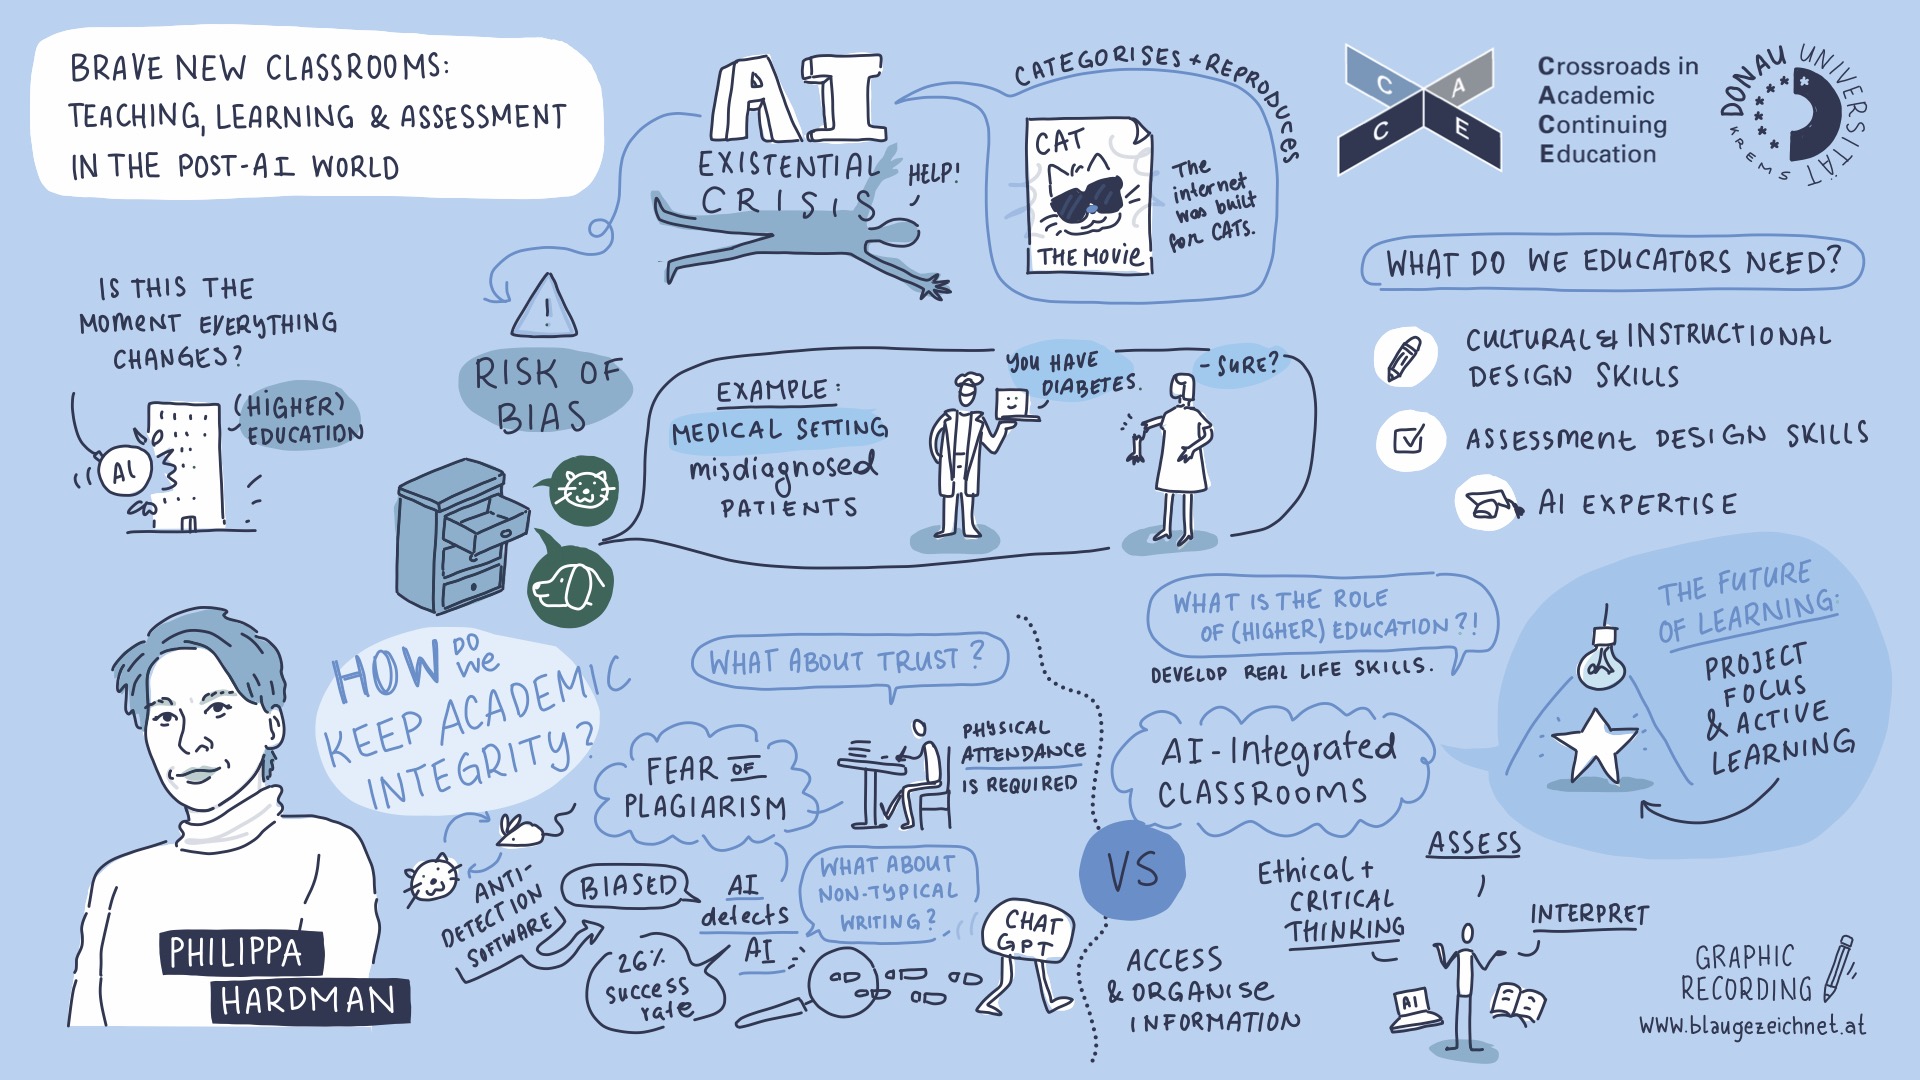 BRAVE NEW CLASSROOMS:
TEACHING, LEARNING & ASSESSMENT
IN THE POST-AI WORLD
AI
EXISTENTIAL
CRISIS
HELP!
CATEGORISES + REPRODUCES
CAT
THE MOVIE
The
internet
was built
for CATs.
C A C E
Crossroads in
Academic
Continuing
Education
DONAU UNIVERSITÄT
KREMS
IS THIS THE
MOMENT EVERYTHING
CHANGES?
(HIGHER)
EDUCATION
AI
!
RISK OF
BIAS
EXAMPLE:
MEDICAL SETTING
misdiagnosed
PATIENTS
YOU HAVE
DIABETES.
- SURE?
WHAT DO WE EDUCATORS NEED?
CULTURAL & INSTRUCTIONAL
DESIGN SKILLS
ASSESSMENT DESIGN SKILLS
AI EXPERTISE
PHILIPPA
HARDMAN
HOW DO WE
KEEP ACADEMIC
INTEGRITY?
WHAT ABOUT TRUST?
FEAR OF
PLAGIARISM
PHYSICAL
ATTENDANCE
IS REQUIRED
ANTI-
DETECTION
SOFTWARE
BIASED
AI
detects
AI
26%
success
rate
WHAT ABOUT
NON-TYPICAL
WRITING?
CHAT
GPT
VS
WHAT IS THE ROLE
OF (HIGHER) EDUCATION?!
DEVELOP REAL LIFE SKILLS.
AI-Integrated
CLASSROOMS
THE FUTURE
OF LEARNING:
PROJECT
FOCUS
& ACTIVE
LEARNING
AI
ASSESS
Ethical +
CRITICAL
THINKING
INTERPRET
ACCESS
& ORGANISE
INFORMATION
AI
GRAPHIC
RECORDING
www.blaugezeichnet.at